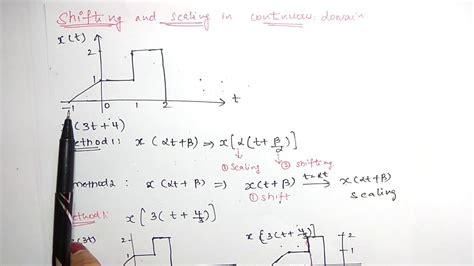 Shifting and scaling in continuous domain
x(t)
2
1
-1 0 1 2 t
(3t+4)
ethod 1: x(αt+β) ⇒ x[α(t+β/α)]
① scaling ② shifting
method 2: x(αt+β) ⇒ x(t+β) t=αt → x(αt+β)
① shift scaling
ethod 1: x[3(t+4/3)]
x(3t) 2 x[3(t+4/3)] 2
1 1